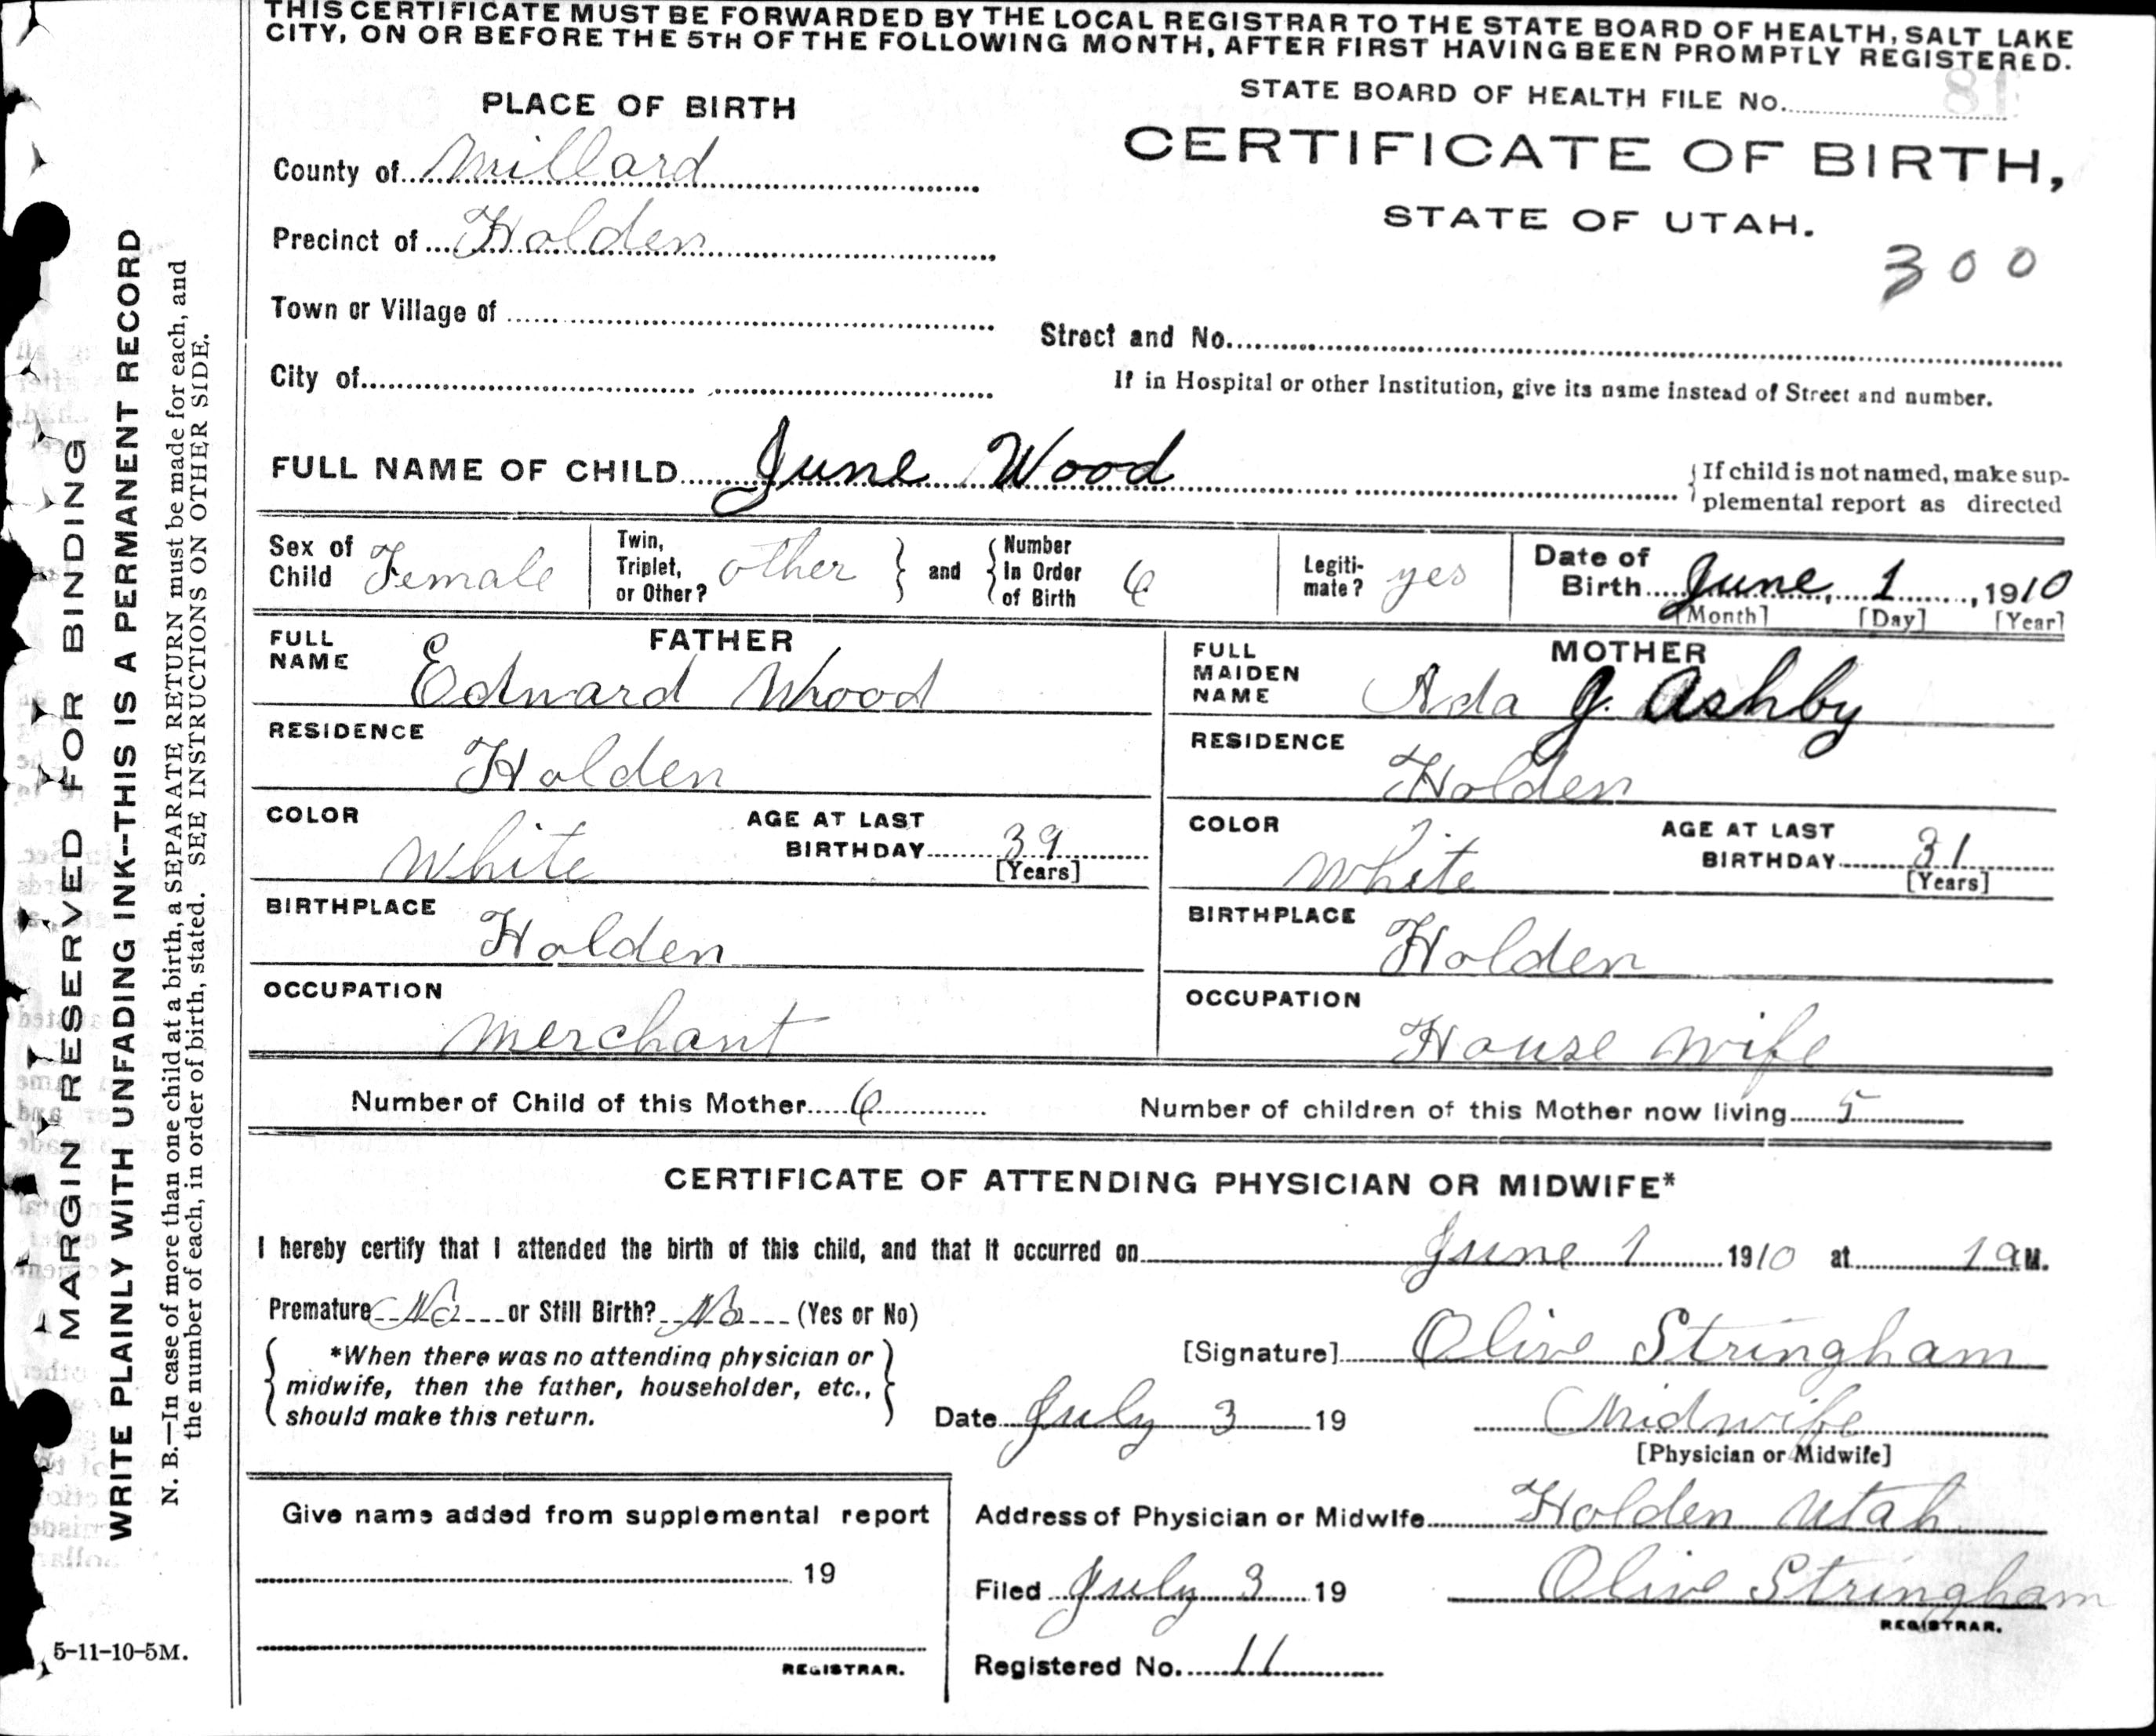 THIS CERTIFICATE MUST BE FORWARDED BY THE LOCAL REGISTRAR TO THE STATE BOARD OF HEALTH, SALT LAKE
CITY, ON OR BEFORE THE 5TH OF THE FOLLOWING MONTH, AFTER FIRST HAVING BEEN PROMPTLY REGISTERED.
STATE BOARD OF HEALTH FILE No. 81
PLACE OF BIRTH
CERTIFICATE OF BIRTH,
STATE OF UTAH.
300
County of Millard
Precinct of Holden
Town or Village of
Street and No.
City of
If in Hospital or other Institution, give its name instead of Street and number.
FULL NAME OF CHILD June Wood
If child is not named, make sup-
plemental report as directed
Sex of Child Female
Twin, Triplet, or Other? other
and Number In Order of Birth 6
Legiti-mate? yes
Date of Birth June, 1, 1910
[Month] [Day] [Year]
FATHER
FULL NAME Edward Wood
RESIDENCE Holden
COLOR White
AGE AT LAST BIRTHDAY 39
[Years]
BIRTHPLACE Holden
OCCUPATION merchant
MOTHER
FULL MAIDEN NAME Ada J. Ashby
RESIDENCE Holden
COLOR White
AGE AT LAST BIRTHDAY 31
[Years]
BIRTHPLACE Holden
OCCUPATION House wife
Number of Child of this Mother 6
Number of children of this Mother now living 5
CERTIFICATE OF ATTENDING PHYSICIAN OR MIDWIFE*
I hereby certify that I attended the birth of this child, and that it occurred on June 1 1910 at 1 a M.
Premature No or Still Birth? No (Yes or No)
*When there was no attending physician or
midwife, then the father, householder, etc.,
should make this return.
[Signature] Olive Stringham
Date July 3 19
Midwife
[Physician or Midwife]
Give name added from supplemental report
19
REGISTRAR.
Address of Physician or Midwife Holden Utah
Filed July 3 19
Olive Stringham
REGISTRAR.
Registered No. 11
MARGIN RESERVED FOR BINDING
WRITE PLAINLY WITH UNFADING INK--THIS IS A PERMANENT RECORD
N. B.—In case of more than one child at a birth, a SEPARATE RETURN must be made for each, and
the number of each, in order of birth, stated. SEE INSTRUCTIONS ON OTHER SIDE.
5-11-10-5M.